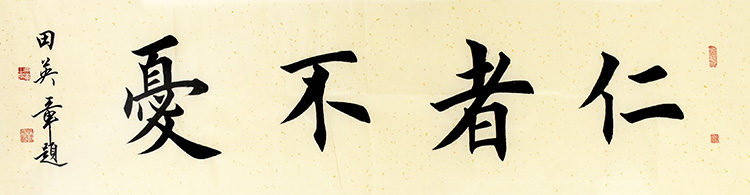 仁者不憂
田英章題